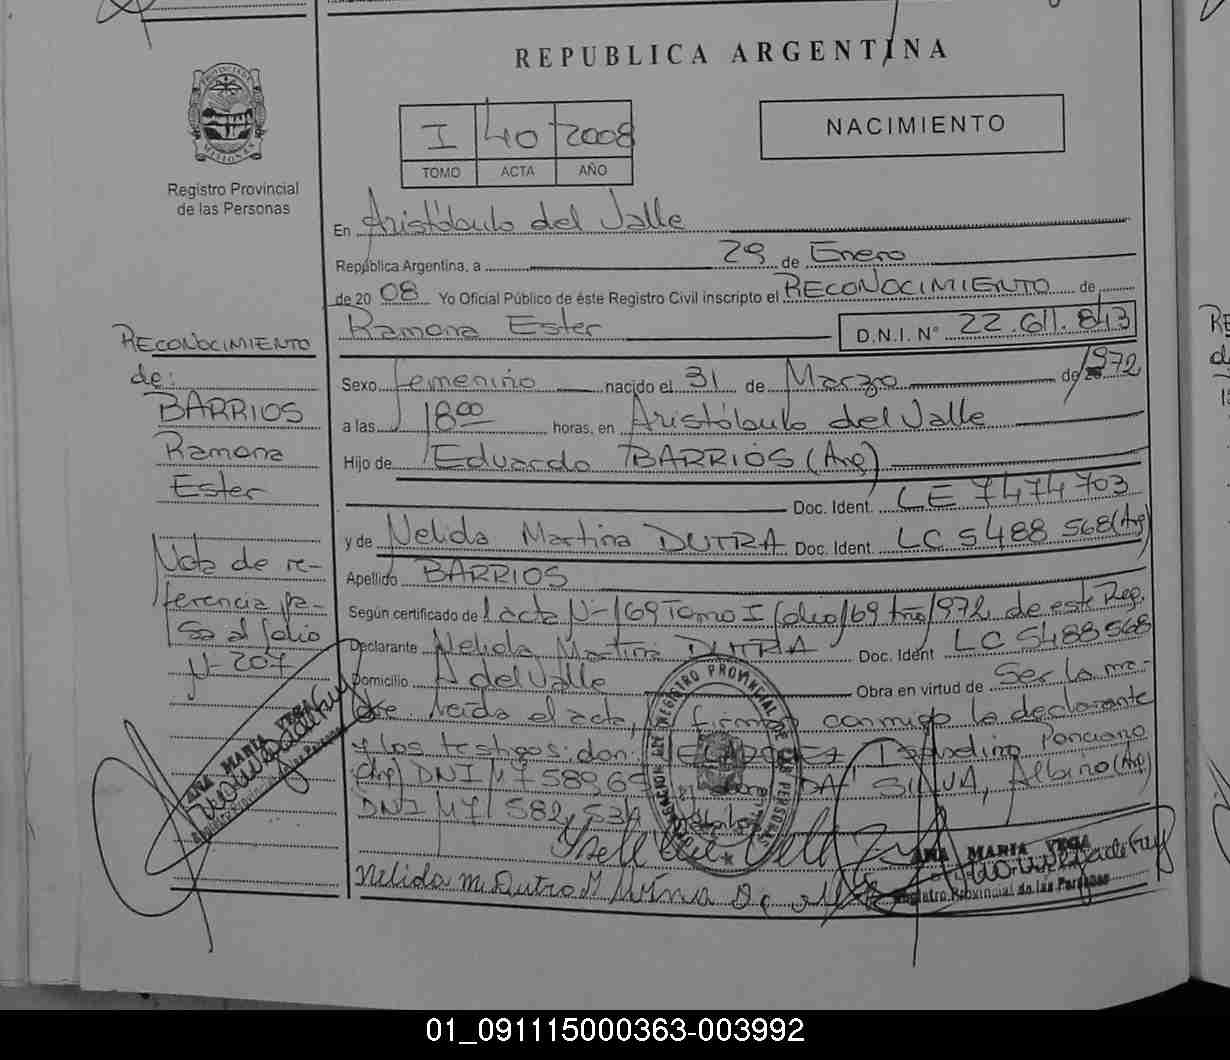 REPUBLICA ARGENTINA
PROVINCIA DE MISIONES
Registro Provincial
de las Personas
I 40 2008
TOMO ACTA AÑO
NACIMIENTO
En Aristóbulo del Valle
República Argentina, a 29 de Enero
de 20 08 Yo Oficial Público de éste Registro Civil inscripto el RECONOCIMIENTO de
Ramona Ester D.N.I. N° 22.611.843
Sexo femenino nacido el 31 de Marzo de 1972
a las 18 00 horas, en Aristóbulo del Valle
Hijo de Eduardo BARRIOS (Arg)
Doc. Ident. LE 7474703
y de Nelida Martina DUTRA Doc. Ident. LC 5488 568 (Arg)
Apellido BARRIOS
Según certificado de Acta Nº 169 Tomo I folio 169 Año 1972 de este Reg.
Declarante Nelida Martina DUTRA Doc. Ident LC 5488568
Domicilio A del Valle Obra en virtud de Ser la ma-
dre leída el acta, firman conmigo la declarante
y los testigos: don: Ponciano
(Arg) DNI Nº 7589.6 DA SILVA, Albino (Arg)
DNI Nº 7/582.53
Nelida M. Dutra
RECONOCIMIENTO
de:
BARRIOS
Ramona
Ester
Nota de re-
ferencia pa-
sa al folio
Nº 207
ANA MARIA VEGA
REGISTRO PROVINCIAL DE LAS PERSONAS
ANA MARIA VEGA
Registro Provincial de las Personas
01_091115000363-003992